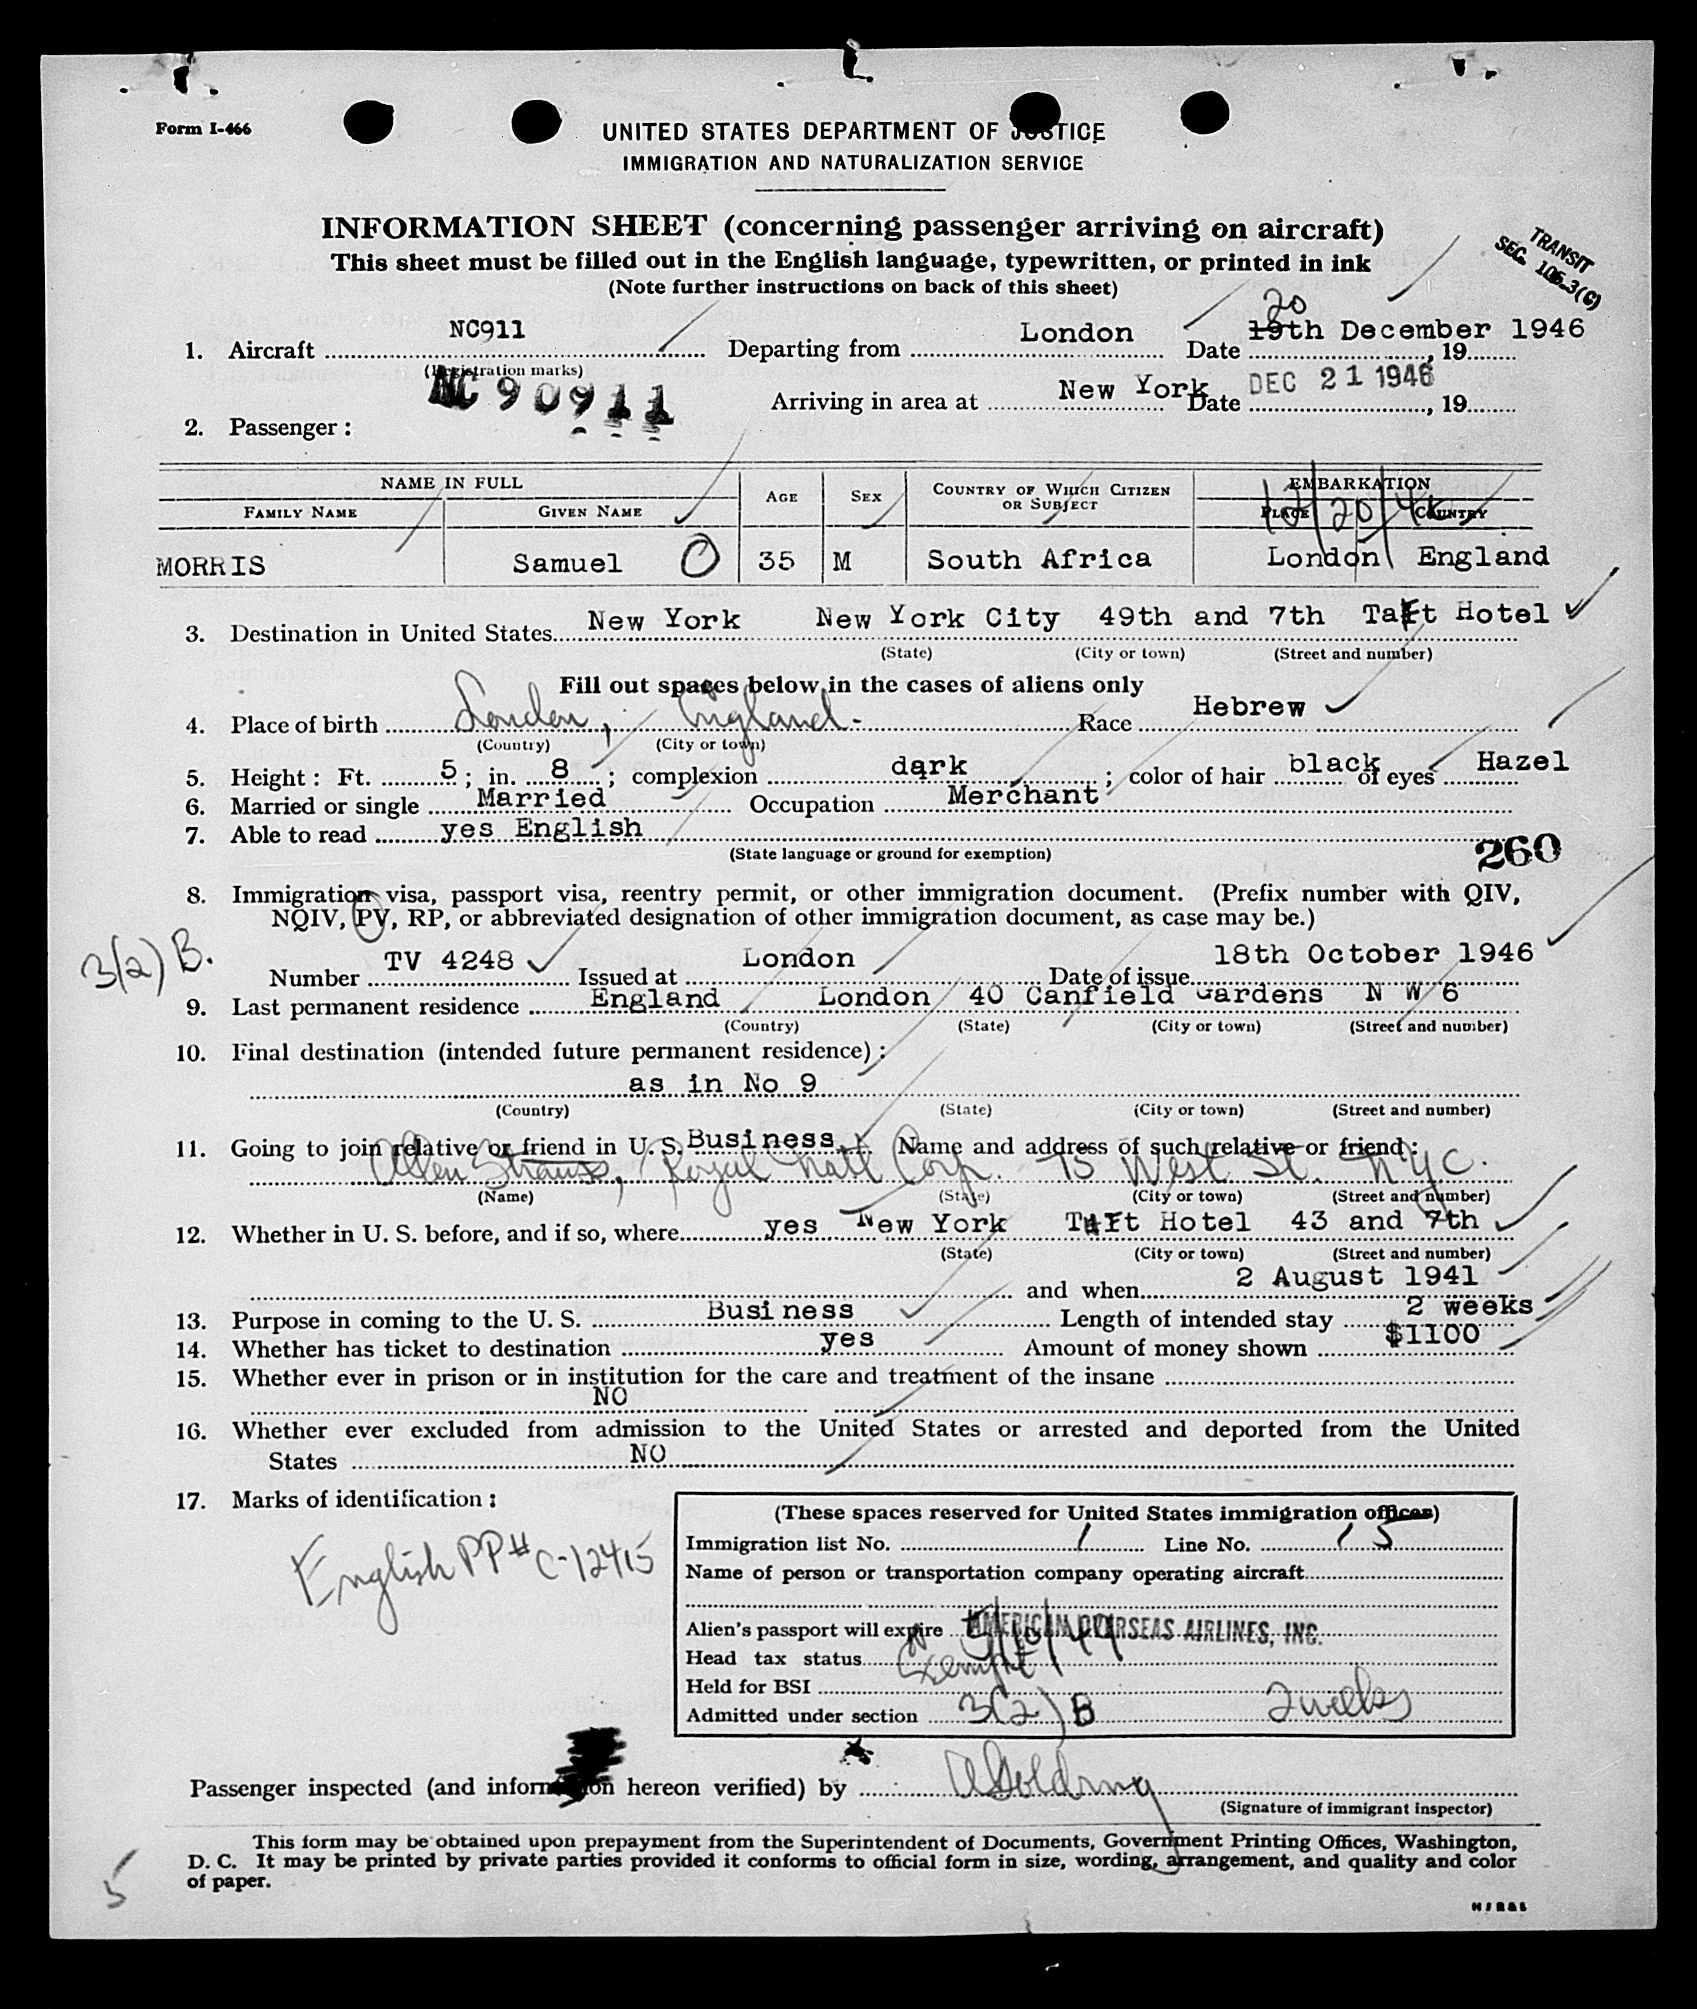 Form I-466
UNITED STATES DEPARTMENT OF JUSTICE
IMMIGRATION AND NATURALIZATION SERVICE
INFORMATION SHEET (concerning passenger arriving on aircraft)
This sheet must be filled out in the English language, typewritten, or printed in ink
(Note further instructions on back of this sheet)
TRANSIT
SEC. 105.3(C)
20
1. Aircraft NC911 Departing from London Date 19th December 1946, 19
(Registration marks)
NC90911 Arriving in area at New York Date DEC 21 1946, 19
2. Passenger:
NAME IN FULL AGE SEX COUNTRY OF WHICH CITIZEN OR SUBJECT EMBARKATION
FAMILY NAME GIVEN NAME PLACE COUNTRY
12/20/46
MORRIS Samuel O 35 M South Africa London England
3. Destination in United States New York New York City 49th and 7th Taft Hotel
(State) (City or town) (Street and number)
Fill out spaces below in the cases of aliens only
4. Place of birth London, England Race Hebrew
(Country) (City or town)
5. Height: Ft. 5; in. 8; complexion dark; color of hair black of eyes Hazel
6. Married or single Married Occupation Merchant
7. Able to read yes English
(State language or ground for exemption)
260
8. Immigration visa, passport visa, reentry permit, or other immigration document. (Prefix number with QIV,
NQIV, PV, RP, or abbreviated designation of other immigration document, as case may be.)
3(2) B.
Number TV 4248 Issued at London Date of issue 18th October 1946
9. Last permanent residence England London 40 Canfield Gardens N W 6
(Country) (State) (City or town) (Street and number)
10. Final destination (intended future permanent residence):
as in No 9
(Country) (State) (City or town) (Street and number)
11. Going to join relative or friend in U. S. Business. Name and address of such relative or friend:
Allen Strauss, Royal Natl Corp. 75 West St. NYC.
(Name) (State) (City or town) (Street and number)
12. Whether in U. S. before, and if so, where yes New York Taft Hotel 43 and 7th
(State) (City or town) (Street and number)
and when 2 August 1941
13. Purpose in coming to the U. S. Business Length of intended stay 2 weeks
14. Whether has ticket to destination yes Amount of money shown $1100
15. Whether ever in prison or in institution for the care and treatment of the insane
NO
16. Whether ever excluded from admission to the United States or arrested and deported from the United
States NO
17. Marks of identification:
English PP# C-12415
(These spaces reserved for United States immigration offices)
Immigration list No. 1 Line No. 15
Name of person or transportation company operating aircraft
AMERICAN OVERSEAS AIRLINES, INC.
Alien's passport will expire
Head tax status Exempt
Held for BSI
Admitted under section 3(2) B 2 weeks
Passenger inspected (and information hereon verified) by
(Signature of immigrant inspector)
This form may be obtained upon prepayment from the Superintendent of Documents, Government Printing Offices, Washington,
D. C. It may be printed by private parties provided it conforms to official form in size, wording, arrangement, and quality and color
of paper.
5